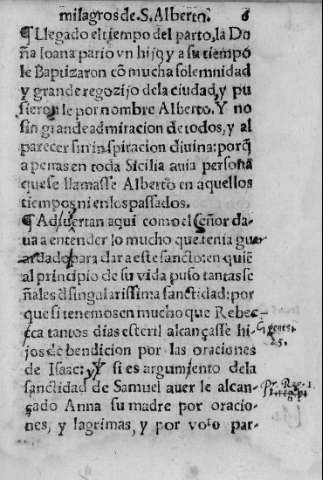 milagros de. S. Alberto. 6
¶ Llegado el tiempo del parto, la Do
ña Ioana pario vn hijo, y a su tiempo
le Baptizaron cõ mucha solemnidad
y grande regozijo de la ciudad, y pu
sieron le por nombre Alberto. Y no
sin grande admiracion de todos, y al
parecer sin inspiracion diuina: porq̃
apenas en toda Sicilia auia persona
que se llamasse Alberto en aquellos
tiempos, ni en los passados.
¶ Aduiertan aqui como el señor da-
ua a entender lo mucho que tenia gua
rdado para dar a este sancto: en quiẽ
al principio de su vida puso tantas se
ñales d̃ singularissima sanctidad: por
que si tenemos en mucho que Rebec
ca tantos dias esteril alcançasse hi-
jos de bendicion por las oraciones
de Isaac: y si es argumiento de la
sanctidad de Samuel auer le alcan-
çado Anna su madre por oracio-
nes, y lagrimas, y por voto par-
Genes.
25.
Pr. Reg. 1.